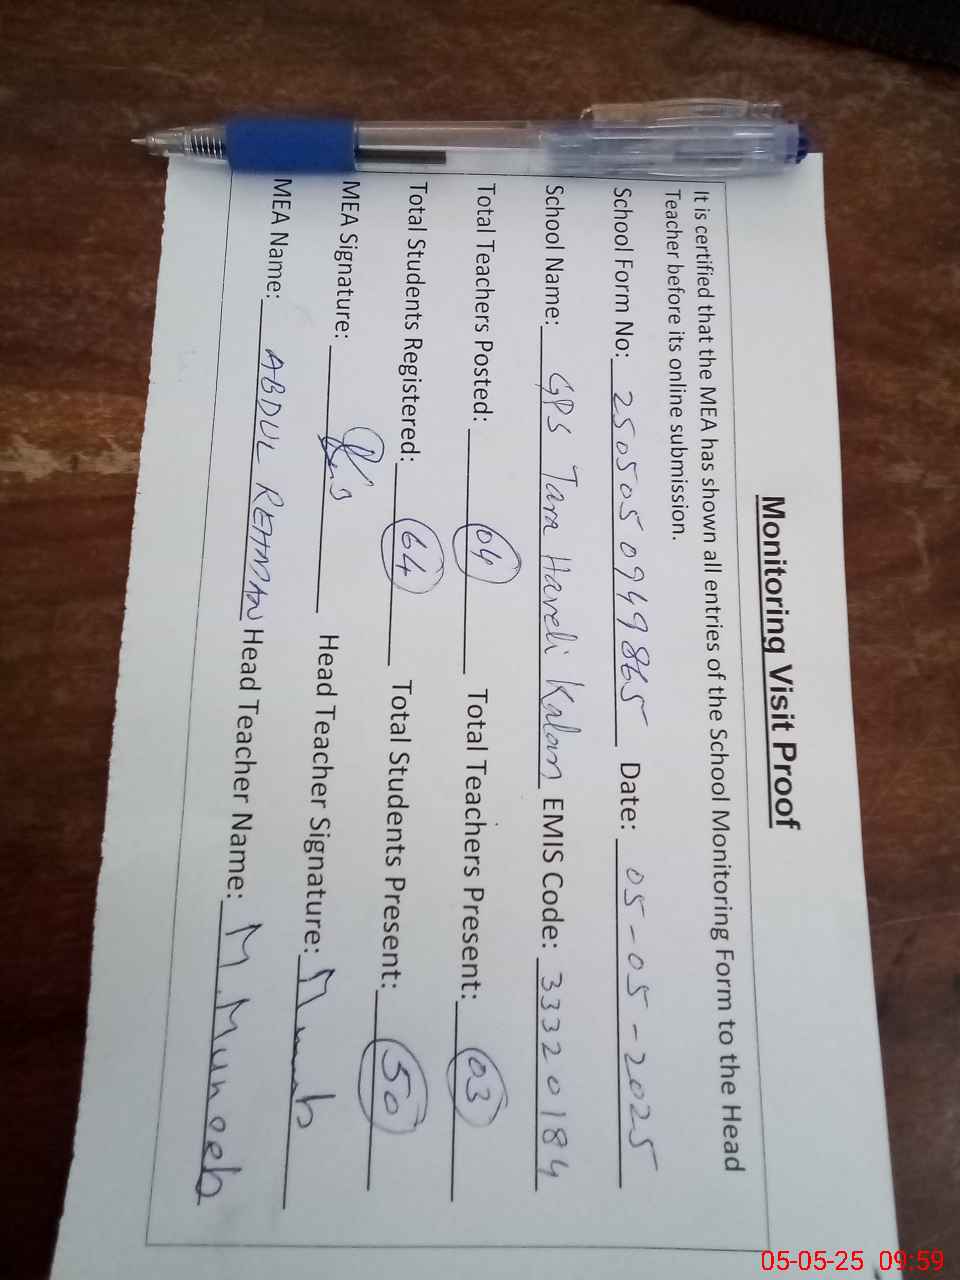 Monitoring Visit Proof
It is certified that the MEA has shown all entries of the School Monitoring Form to the Head
Teacher before its online submission.
School Form No: 250505094 9865 Date: 05-05-2025
School Name: GPS Tara Haveli Kalan EMIS Code: 33320184
Total Teachers Posted: 04 Total Teachers Present: 03
Total Students Registered: 64 Total Students Present: 50
MEA Signature: Head Teacher Signature:
MEA Name: ABDUL REHMAN Head Teacher Name: M.Muneeb
05-05-25 09:59